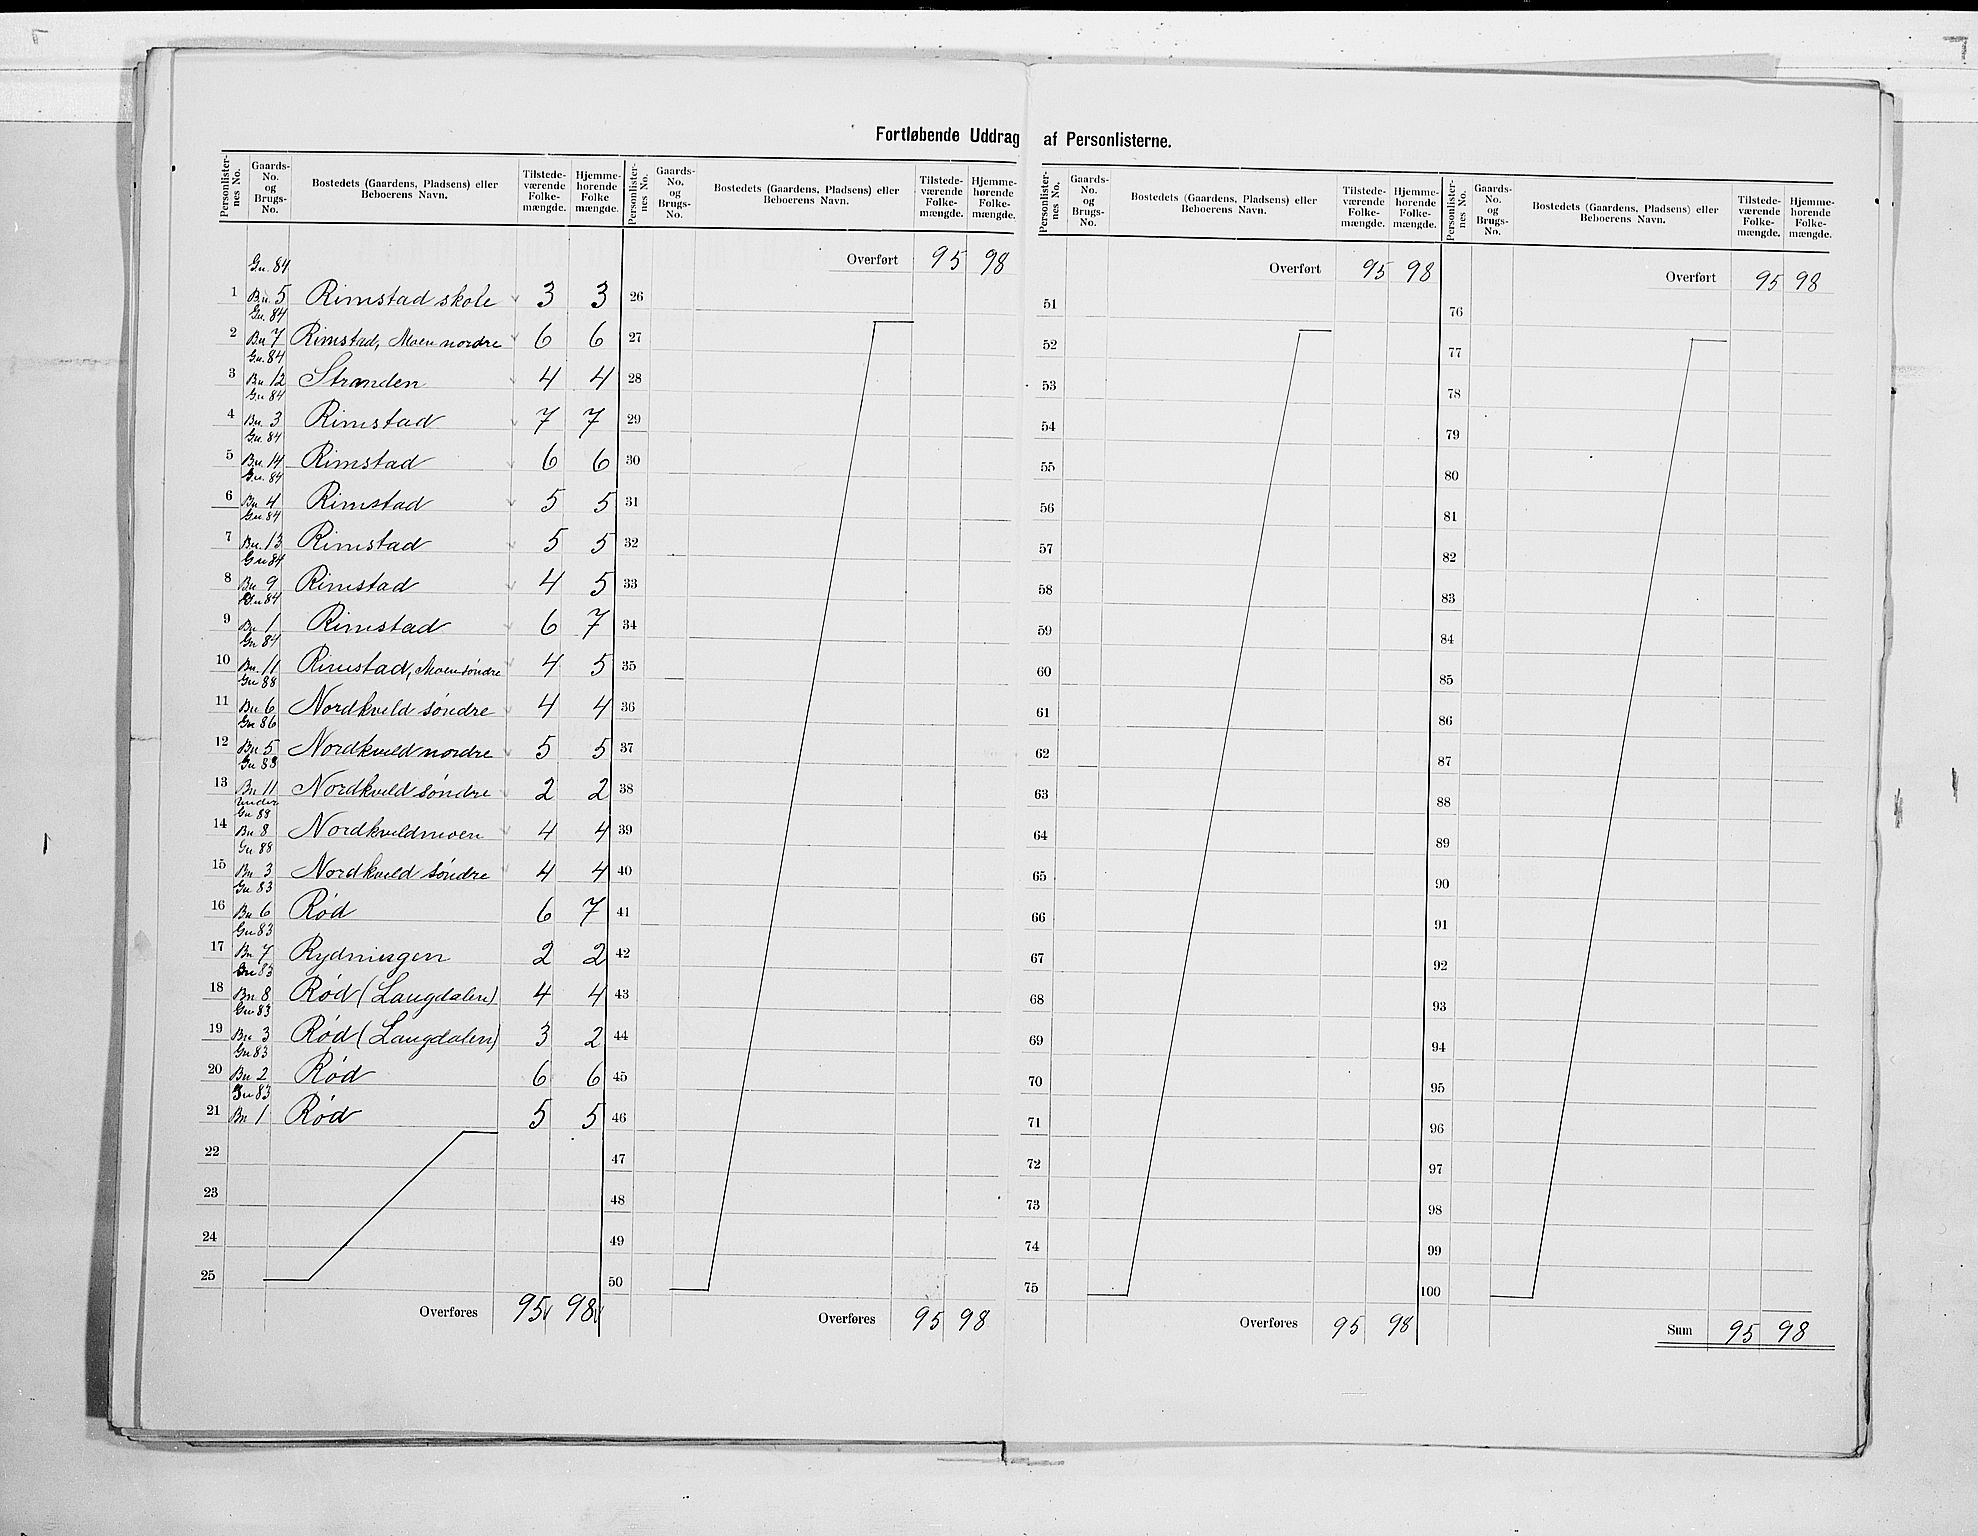 Fortløbende Uddrag af Personlisterne.
Personlister-nes No. Gaards-No. og Brugs-No. Bostedets (Gaardens, Pladsens) eller Beboerens Navn. Tilstede-værende Folke-mængde. Hjemme-hørende Folke mængde.
Gn. 84
1 Bn. 5 Rimstad skole 3 3
Gn. 84
2 Bn 7 Rimstad, Moen nordre 6 6
Gn. 84
3 Bn. 12 Stranden 4 4
Gn 84
4 Bn. 3 Rimstad 7 7
Gn. 84
5 Bn. 14 Rimstad 6 6
Gn. 84
6 Bn 4 Rimstad 5 5
Gn. 84
7 Bn. 13 Rimstad 5 5
Gn 84
8 Bn 9 Rimstad 4 5
Gn 84
9 Bn 1 Rimstad 6 7
Gn 84
10 Bn. 11 Rimstad, Moen søndre 4 5
Gn 88
11 Bn 6 Nordkveld søndre 4 4
Gn 86
12 Bn 5 Nordkveld nordre 5 5
Gn 88
13 Bn 11 Nordkveld søndre 2 2
under
Gn 88
14 Bn 8 Nordkveldmoen 4 4
Gn 88
15 Bn 3 Nordkveld søndre 4 4
Gn 83
16 Bn 6 Rød 6 7
Gn 83
17 Bn 7 Rydningen 2 2
Gn 83
18 Bn 8 Rød (Langdalen) 4 4
Gn 83
19 Bn 3 Rød (Langdalen) 3 2
Gn 83
20 Bn 2 Rød 6 6
Gn 83
21 Bn 1 Rød 5 5
22
23
24
25
Overføres 95 98
Personlister-nes No. Gaards-No. og Brugs-No. Bostedets (Gaardens, Pladsens) eller Beboerens Navn. Tilstede-værende Folke-mængde. Hjemme-hørende Folke-mængde.
Overført 95 98
26
27
28
29
30
31
32
33
34
35
36
37
38
39
40
41
42
43
44
45
46
47
48
49
50
Overføres 95 98
Personlister-nes No. Gaards-No. og Brugs-No. Bostedets (Gaardens, Pladsens) eller Beboerens Navn. Tilstede-værende Folke-mængde. Hjemme-hørende Folke-mængde.
Overført 95 98
51
52
53
54
55
56
57
58
59
60
61
62
63
64
65
66
67
68
69
70
71
72
73
74
75
Overføres 95 98
Personlister-nes No. Gaards-No. og Brugs-No. Bostedets (Gaardens, Pladsens) eller Beboerens Navn. Tilstede-værende Folke-mængde. Hjemme-hørende Folke-mængde.
Overført 95 98
76
77
78
79
80
81
82
83
84
85
86
87
88
89
90
91
92
93
94
95
96
97
98
99
100
Sum 95 98